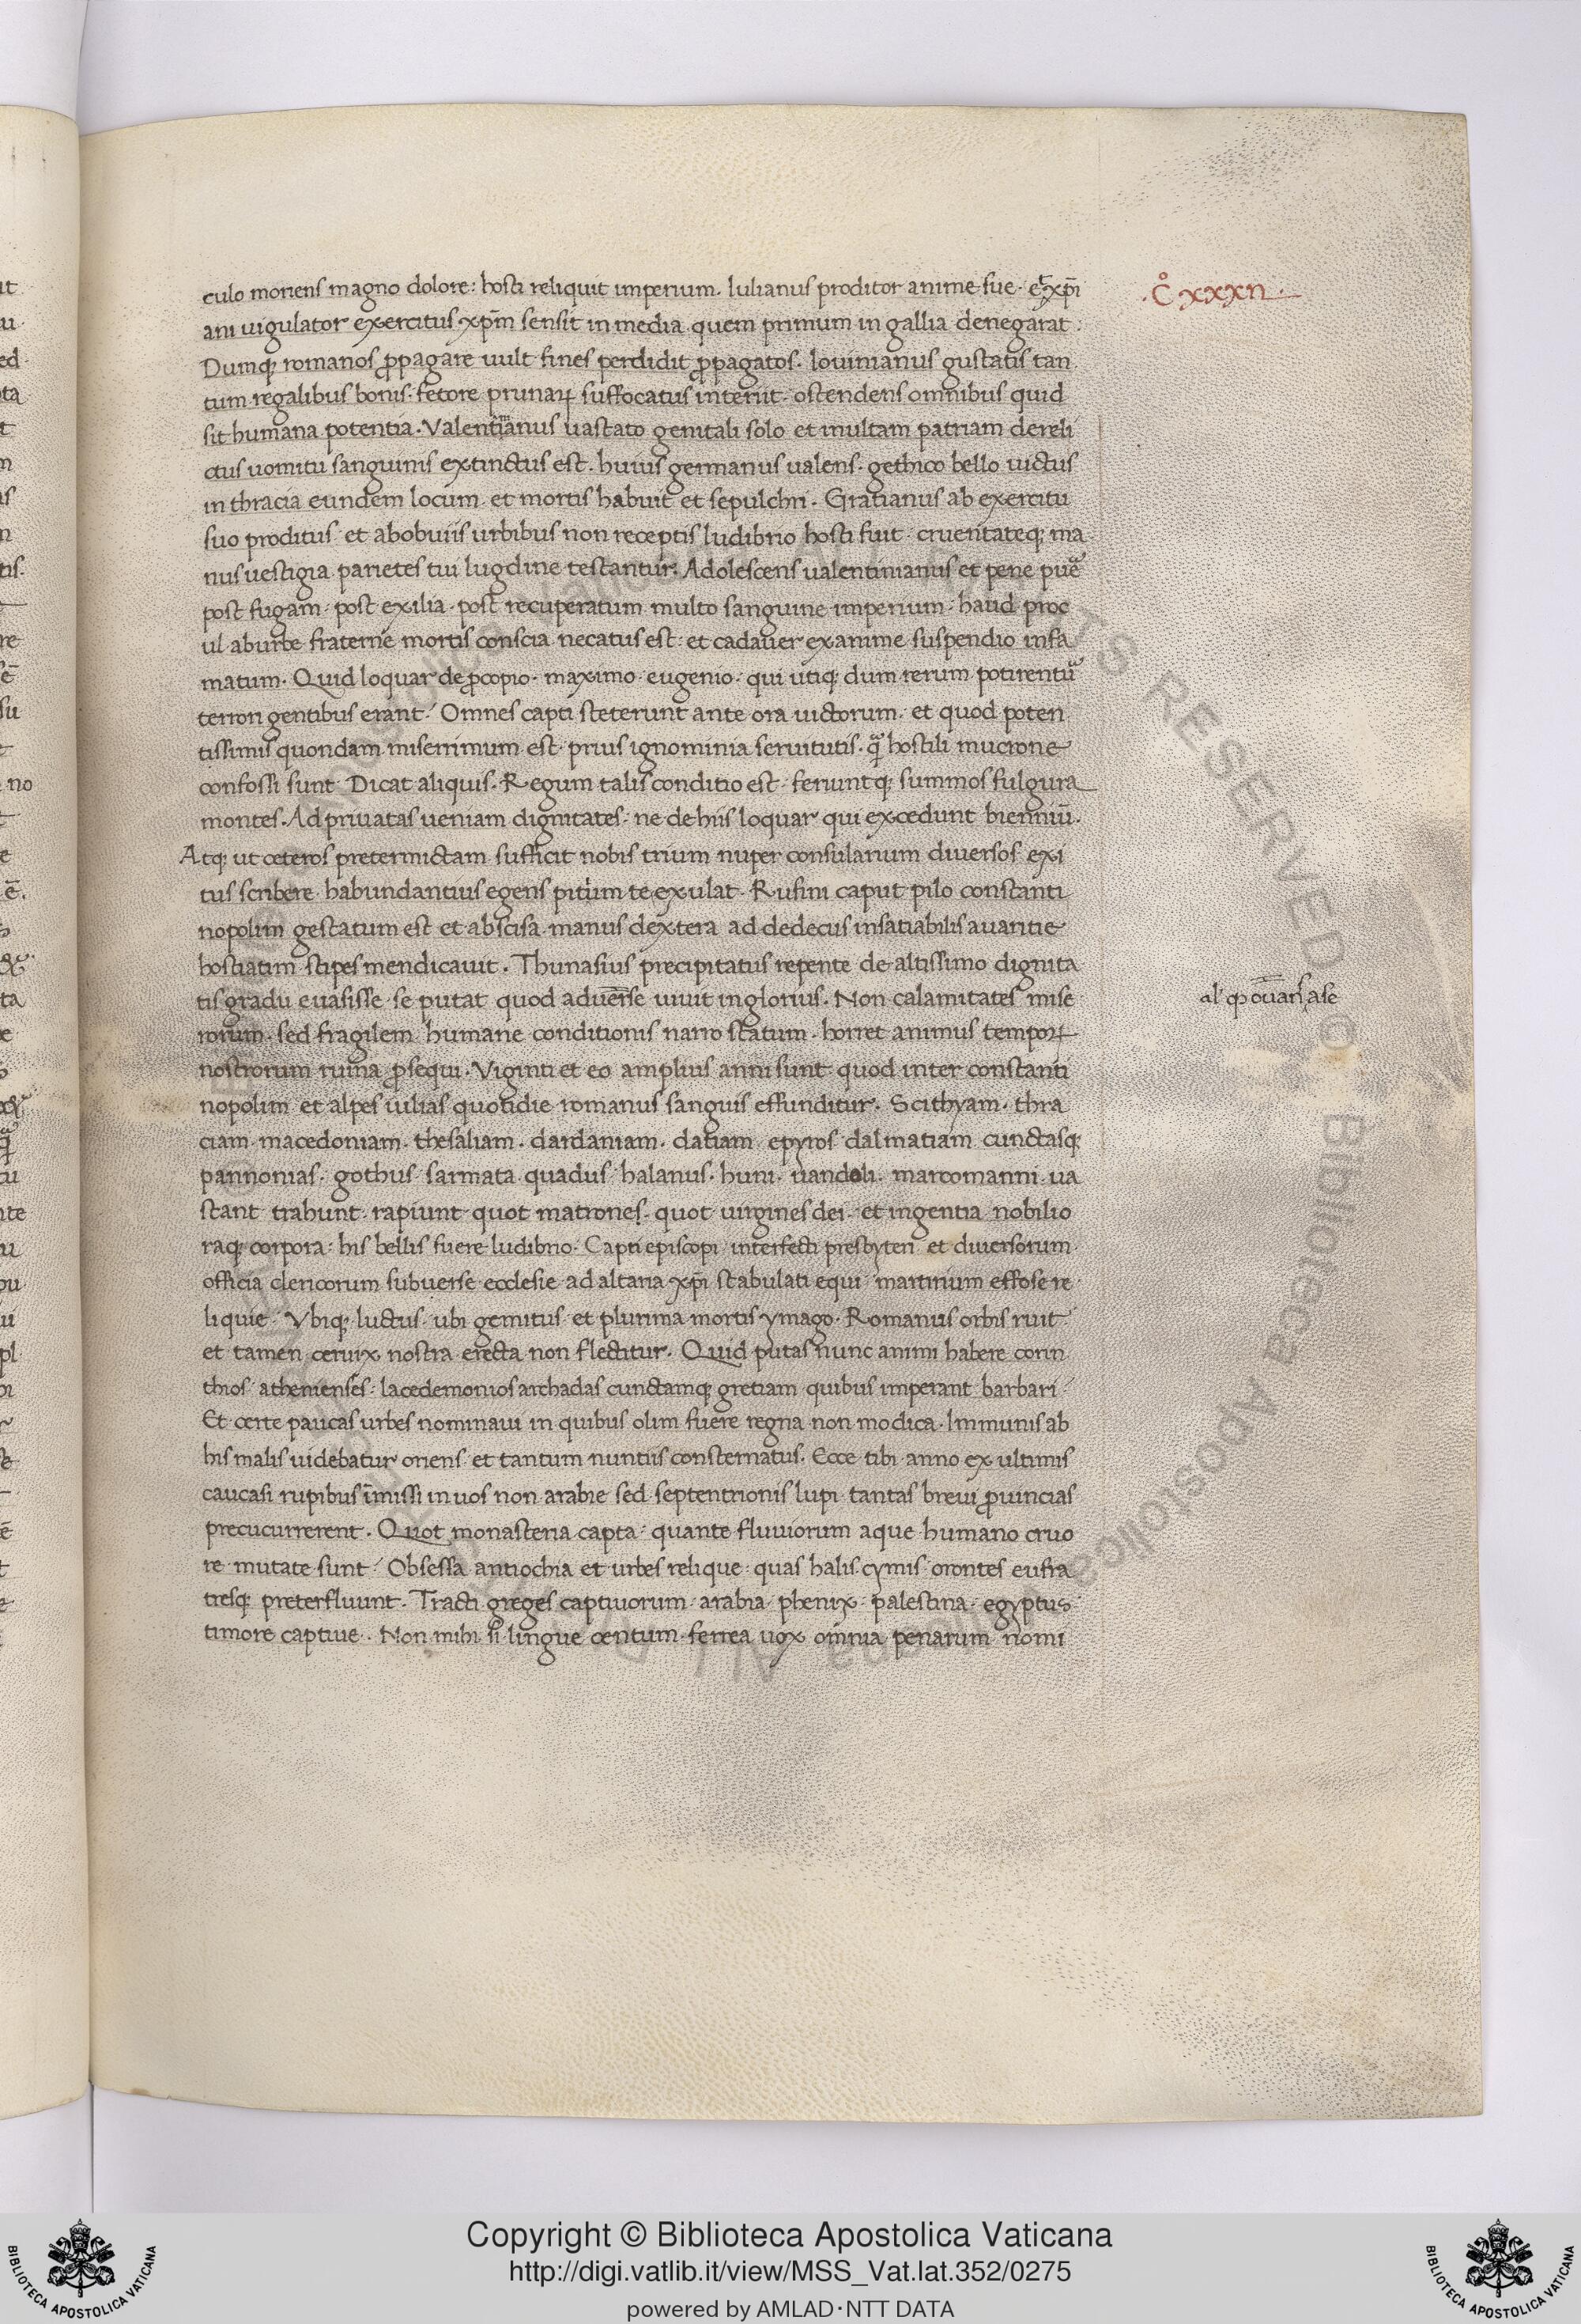 culo moriens magno dolore: hosti reliquit imperium. Iulianus proditor anime sue et xp̄i
ani uigulator exercitus xp̄m sensit in media quem primum in gallia denegarat.
Dumq; romanos ꝓpagare uult fines perdidit ꝓpagatos. Iouinianus gustatis tan
tum regalibus bonis. fetore prunaꝝ suffocatus interiit. ostendens omnibus quid
sit humana potentia. Valentinianus uastato genitali solo et inultam patriam dereli
ctus uomitu sanguinis extinctus est. huius germanus ualens. gethico bello uictus
in thracia eundem locum et mortis habuit et sepulchri. Gratianus ab exercitu
suo proditus et ab obuiis urbibus non receptis ludibrio hosti fuit cruentateq; ma
nus uestigia parietes tui lugdine testantur. Adolescens ualentinianus et pene pueͣ
post fugam. post exilia. post recuperatum multo sanguine imperium. haud proc
ul ab urbe fraterne mortis conscia necatus est: et cadauer exanime suspendio infa
matum. Quid loquar de ꝓcopio. maximo eugenio. qui utiq; dum rerum potirentuͣ
terrori gentibus erant. Omnes capti steterunt ante ora uictorum. et quod poten
tissimis quondam miserrimum est. prius ignominia seruitutis. qͣ hostili mucrone
confossi sunt Dicat aliquis. Regum talis conditio est. feriuntq; summos fulgura
montes. Ad priuatas ueniam dignitates. ne de hiis loquar qui excedunt bienniū.
Atq; ut ceteros pretermictam sufficit nobis trium nuper consularium diuersos exi
tus scribere. habundantius egens pitium te exulat. Rufini caput pilo constanti
nopolim gestatum est et abscisa manus dextera ad dedecus insatiabilis auaritie
hostiatim stipes mendicauit. Thimasius precipitatus repente de altissimo dignita
tis gradu euasisse se putat quod aduerse uiuit inglorius. Non calamitates mise
al'
rorum. sed fragilem humane conditionis narro statum. horret animus tempoꝝ
nostrorum ruina ꝓsequi. Viginti et eo amplius anni sunt quod inter constanti
nopolim et alpes iulias quotidie romanus sanguis effunditur. Scithyam. thra
ciam. macedoniam. thesaliam. dardaniam. datiam epyros dalmatiam cunctasq;
pannonias. gothus sarmata quadus halanus. huni. uandali. marcomanni ua
stant trahunt rapiunt quot matrones. quot uirgines dei. et ingentia nobilio
raq; corpora: his bellis fuere ludibrio. Capti episcopi interfecti presbyteri et diuersorum
officia clericorum subuerse ecclesie ad altaria xp̄i stabulati equi martirium effose re
liquie Vbiq; luctus. ubi gemitus et plurima mortis ymago. Romanus orbis ruit
et tamen ceruix nostra erecta non flectitur. Quid putas nunc animi habere corin
thios athenienses: lacedemonios archadas cunctamq; gretiam quibus imperant barbari
Et certe paucas urbes nominaui in quibus olim fuere regna non modica. Immunis ab
his malis uidebatur oriens et tantum nuntiis consternatus. Ecce tibi anno ex ultimis
caucasi rupibus īmissi in uos non arabie sed septentrionis lupi tantas breui ꝓuincias
precucurrerent. Quot monasteria capta. quante fluuiorum aque humano cruo
re mutate sunt. Obsessa antiochia et urbes relique quas halis. cymis orontes eufra
tresq; preterfluunt. Tracti greges captiuorum arabia phenix palestina egyptus
timore captiue. Non mihi si lingue centum ferrea uox omnia penarum nomi